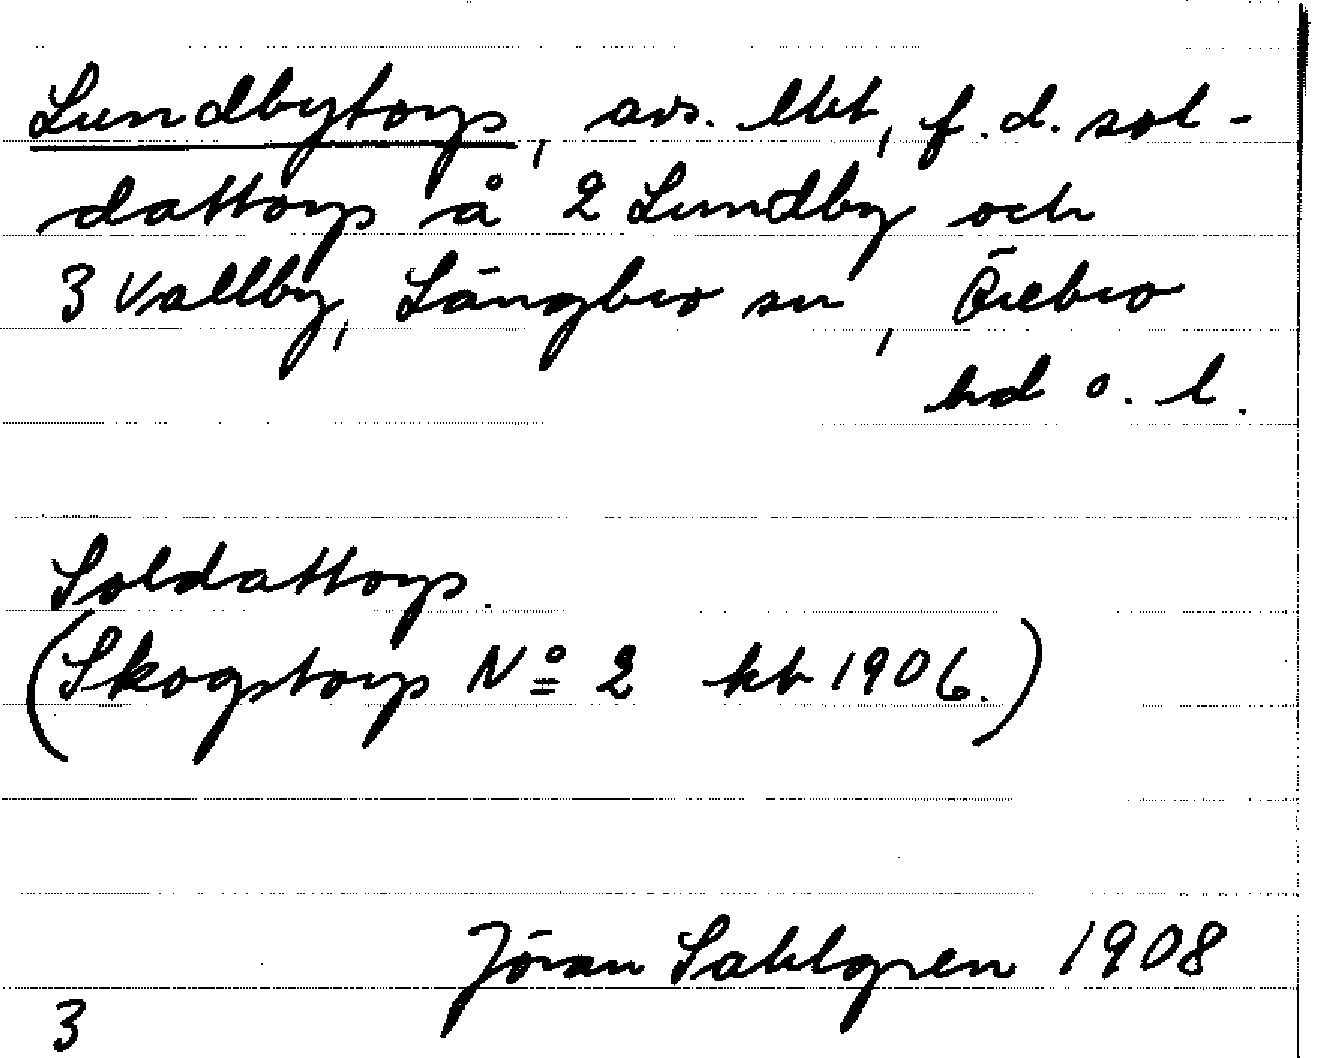 Lundbytorp, avs. lht, f.d. sol-
dattorp å 2 Lundby och
3 Vallby, Längbro sn, Örebro
hd o. l.
Soldattorp.
(Skogstorp No 2 kb 1906.)
Jöran Sahlgren 1908
3